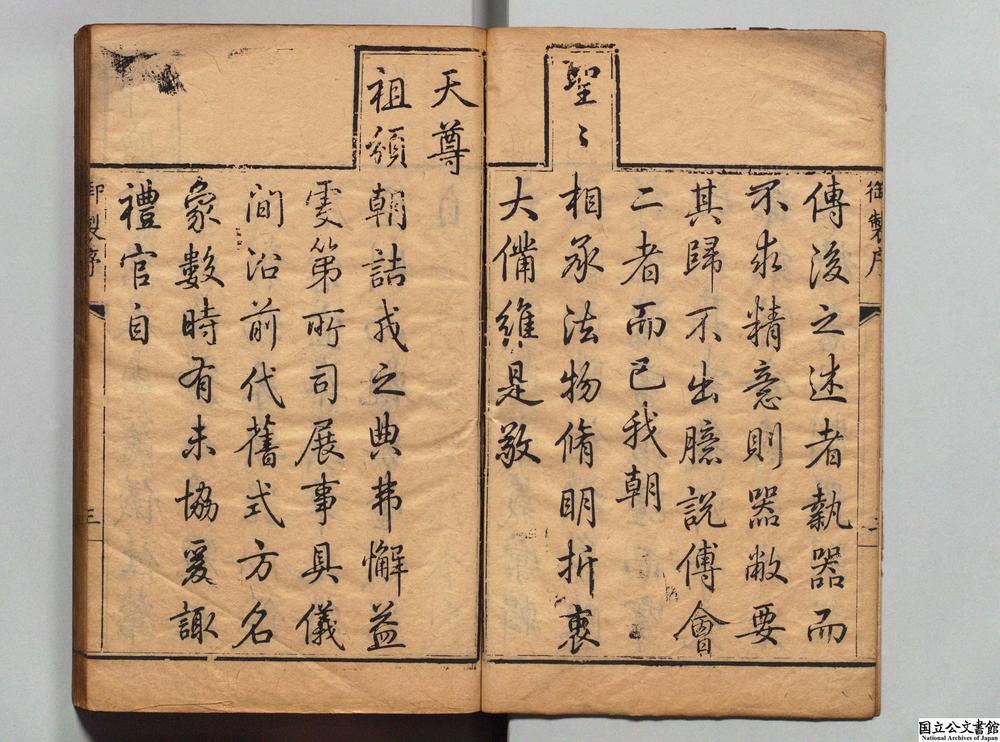 傳後之述者執器而
不求精意則器敝要
其歸不出臆說傅會
二者而已我朝
聖〻相承法物脩明折衷
大備維是敬
天尊
祖頒朝詰戎之典弗懈益
虔第所司展事具儀
間沿前代舊式方名
象數時有未協爰諏
禮官自
御製序
二
御製序
三
国立公文書館
National Archives of Japan